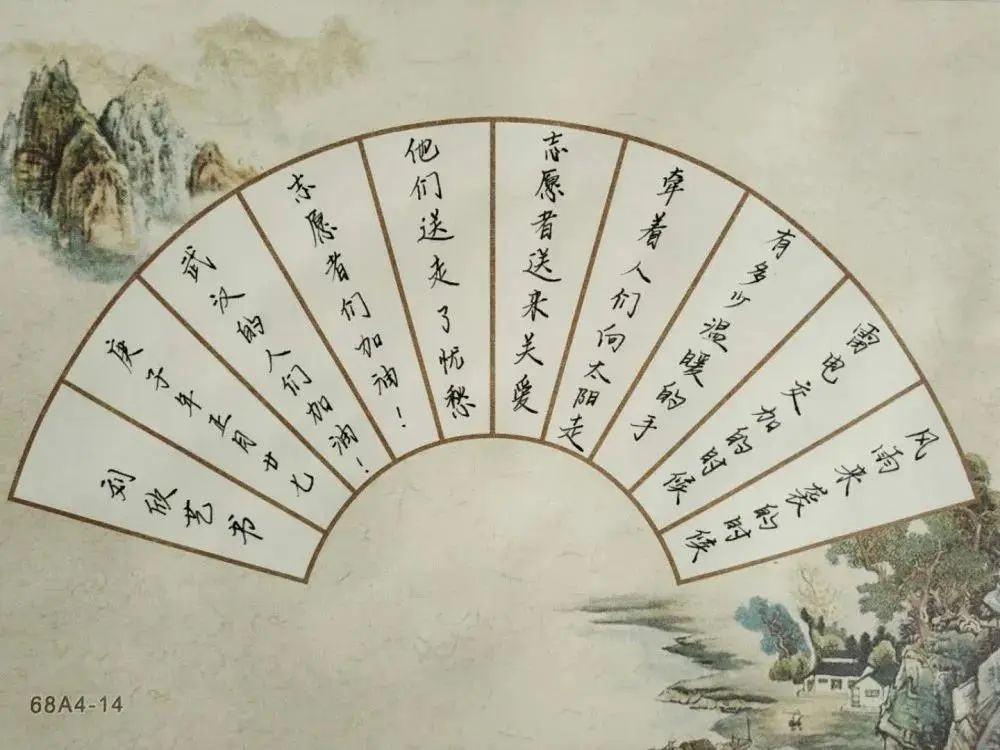 风雨来袭的时候
雷电交加的时候
有多少温暖的手
牵着人们向太阳走
志愿者送来关爱
他们送走了忧愁
志愿者们加油！
武汉的人们加油！
庚子年正月廿七
刘欣艺书
68A4-14